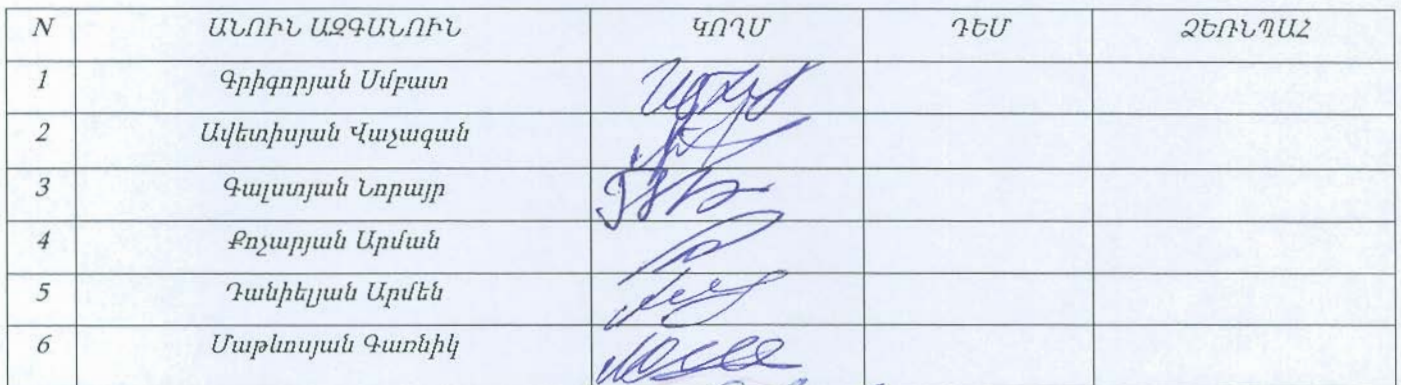 N ԱՆՈՒՆ ԱԶԳԱՆՈՒՆ ԿՈՂՄ ԴԵՄ ՁԵՌՆՊԱՀ
1 Գրիգորյան Սմբատ
2 Ավետիսյան Վաչագան
3 Գալստյան Նորայր
4 Քոչարյան Արման
5 Դանիելյան Արմեն
6 Մաթևոսյան Գառնիկ